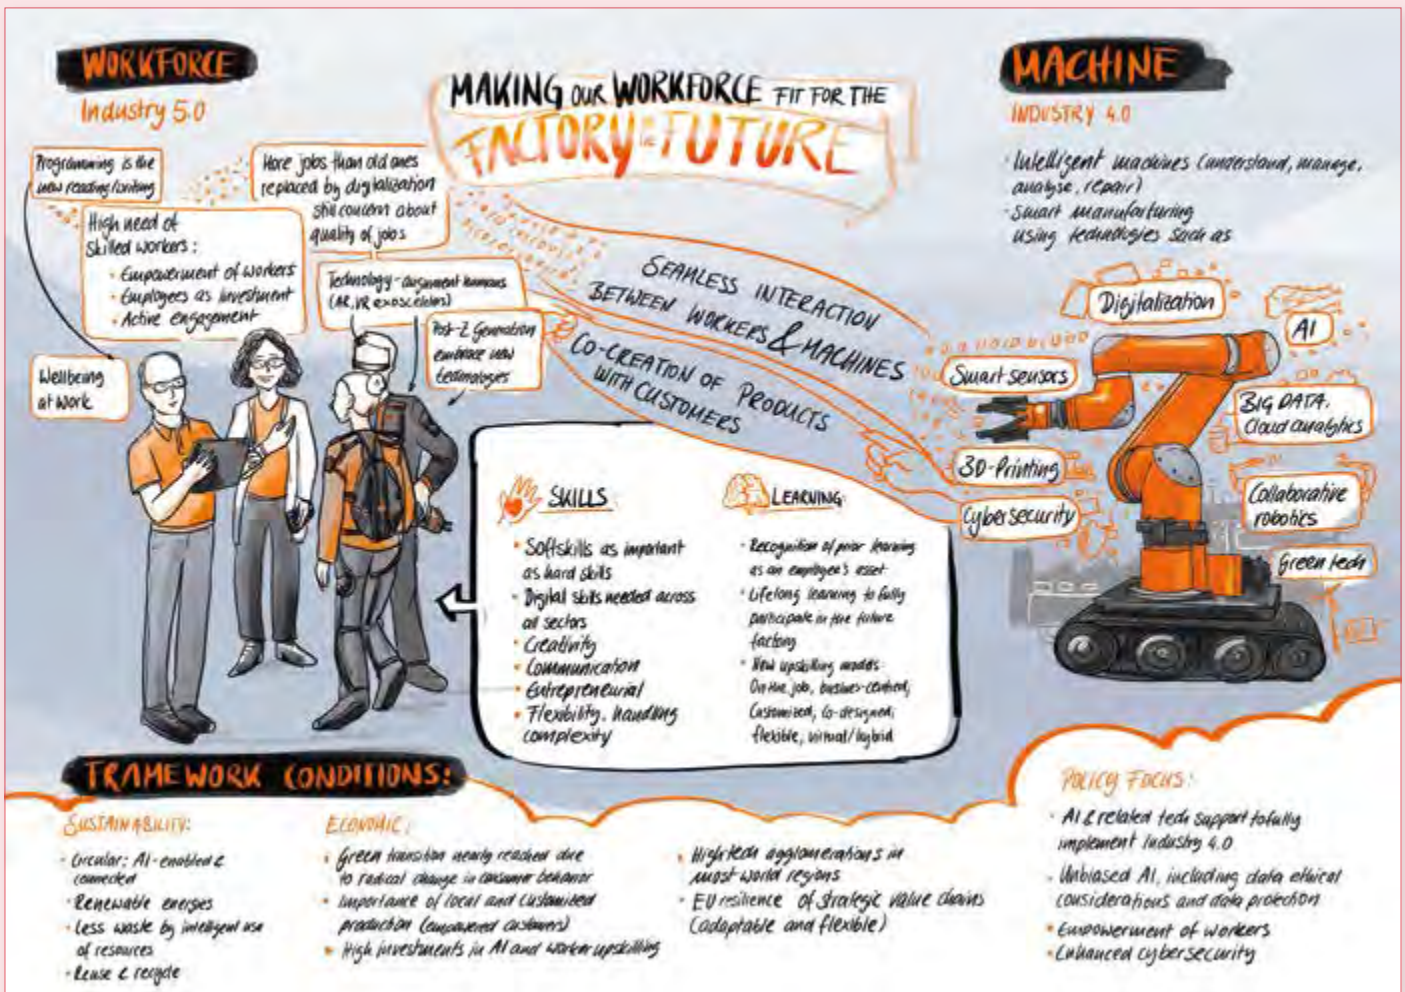 WORKFORCE
Industry 5.0
MAKING OUR WORKFORCE FIT FOR THE
FACTORY OF THE FUTURE
MACHINE
INDUSTRY 4.0
Programming is the
new reading/writing
More jobs than old ones
replaced by digitalization
still concern about
quality of jobs
High need of
skilled workers:
• Empowerment of workers
• Employees as investment
• Active engagement
Technology - augment humans
(AR, VR exosceletons)
Post-Z Generation
embrace new
technologies
Wellbeing
at work
SEAMLESS INTERACTION
BETWEEN WORKERS & MACHINES
CO-CREATION OF PRODUCTS
WITH CUSTOMERS
• Intelligent machines (understand, manage,
analyse, repair)
• Smart manufacturing
using technologies such as
Digitalization
AI
Smart sensors
BIG DATA.
Cloud analytics
3D-Printing
Collaborative
robotics
Cybersecurity
Green tech
SKILLS
• Softskills as important
as hard skills
• Digital skills needed across
all sectors
• Creativity
• Communication
• Entrepreneurial
• Flexibility, handling
complexity
LEARNING
• Recognition of prior learning
as an employee's asset
• Lifelong learning to fully
participate in the future
factory
• New upskilling models
On the job,
Customized, co-designed,
flexible, virtual/hybrid
FRAMEWORK CONDITIONS:
SUSTAINABILITY:
• Circular: AI-enabled &
connected
• Renewable energies
• Less waste by intelligent use
of resources
• Reuse & recycle
ECONOMIC:
• Green transition nearly reached due
to radical change in consumer behavior
• Importance of local and customized
production (empowered customers)
• High investments in AI and worker upskilling
• Hightech agglomerations in
most world regions
• EU resilience of strategic value chains
(adaptable and flexible)
POLICY FOCUS:
• AI & related tech support to fully
implement Industry 4.0
• Unbiased AI, including data ethical
considerations and data protection
• Empowerment of workers
• Enhanced cybersecurity